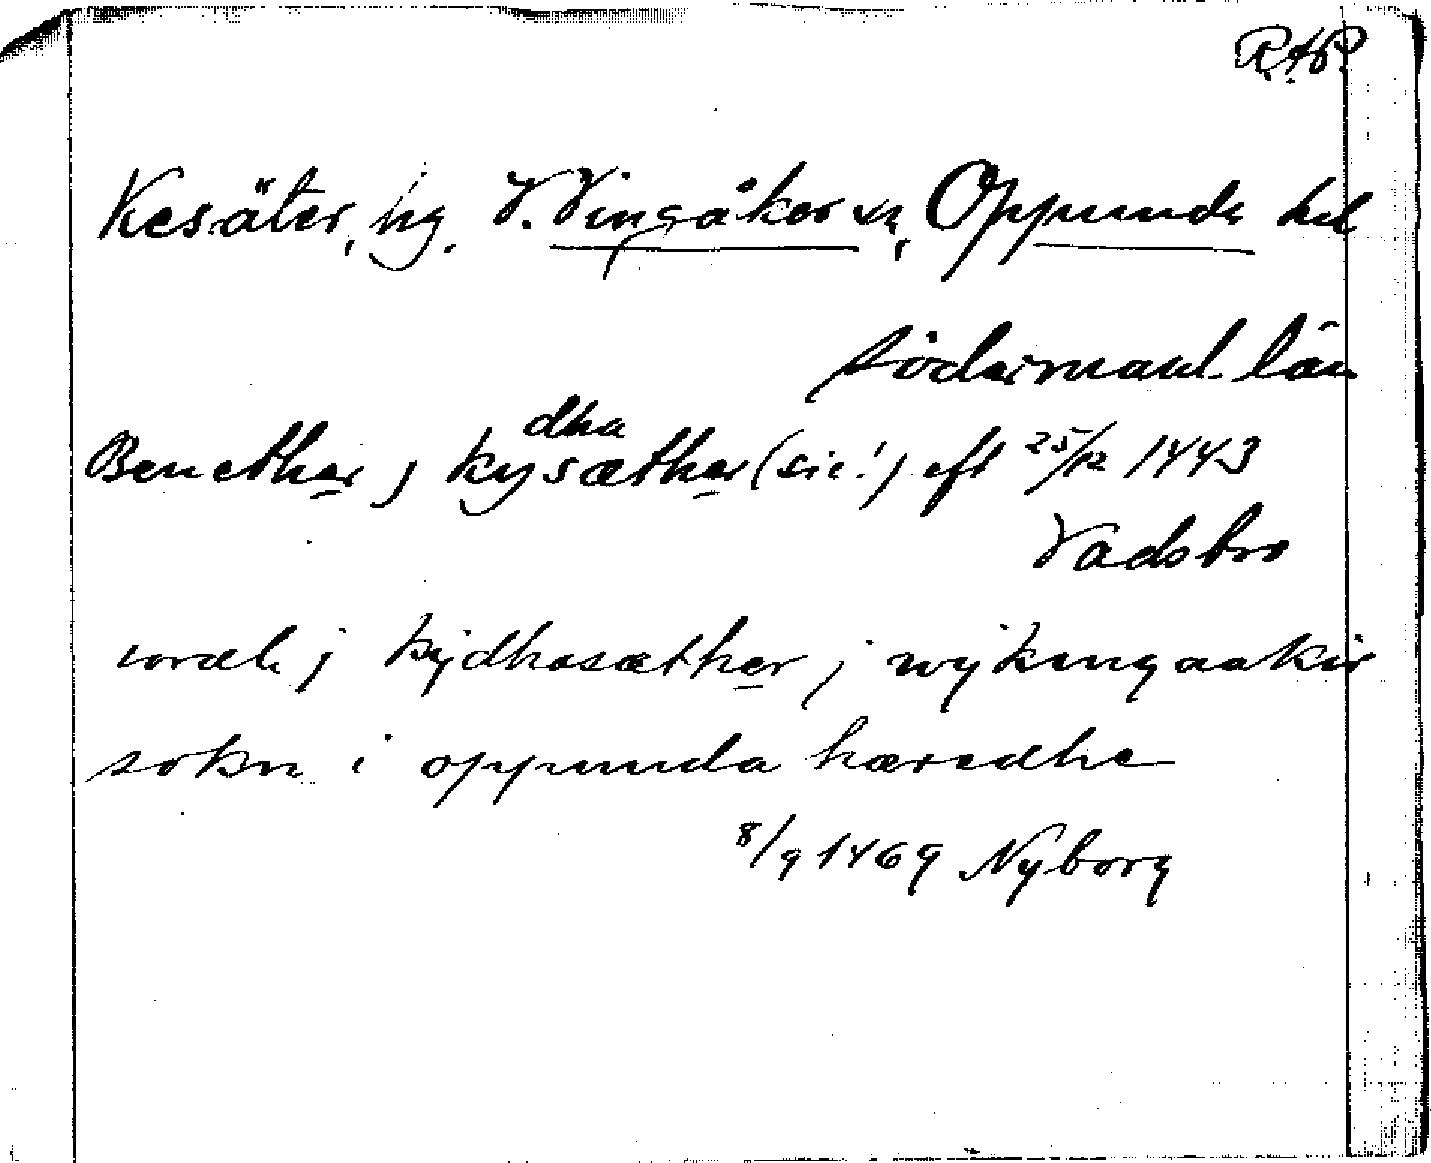 R.A.P.
Kesäter, hg. V. Vingåker sn, Oppunda hd
Södermanl. län
dha
Benether j kysæther (sic!) eft 25/12 1443
Vadsbro
j kijdhasæther j wijkengaakir
sokn i oppunda hæredhe
8/9 1469 Nyborg